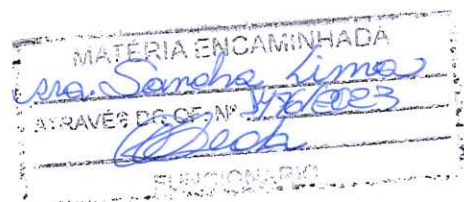 MATÉRIA ENCAMINHADA
Sra. Sandra Lima
ATRAVÉS DO OF. Nº /2023
FUNCIONÁRIO